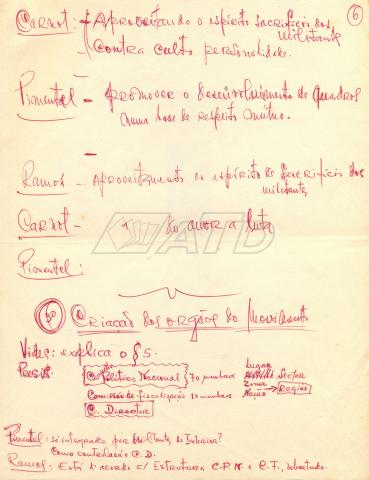 6
Carnot: - Aproveitando o espirito sacrificio dos militantes
- Contra culto personalidades.
Pimentel - Promover o desenvolvimento de quadros
numa base de respeito mútuo.
Ramos - Aproveitamento do espírito de sacrifício dos
militantes
Carnot - " do amor a luta
Pimentel:
ATD
Criação dos orgãos do Movimento
Vides: explica o § 5.
Presid.
C. Politico Nacional 70 membros
Comissão de fiscalização 10 membros
C. Director
Lugar
Sector
Zona
Região
Pimentel: só integrado por militantes do Interior?
Como controlarão C.D.
Ramos: Está d'acordo c/ Estrutura C.P.N. e C.F., sobretudo.